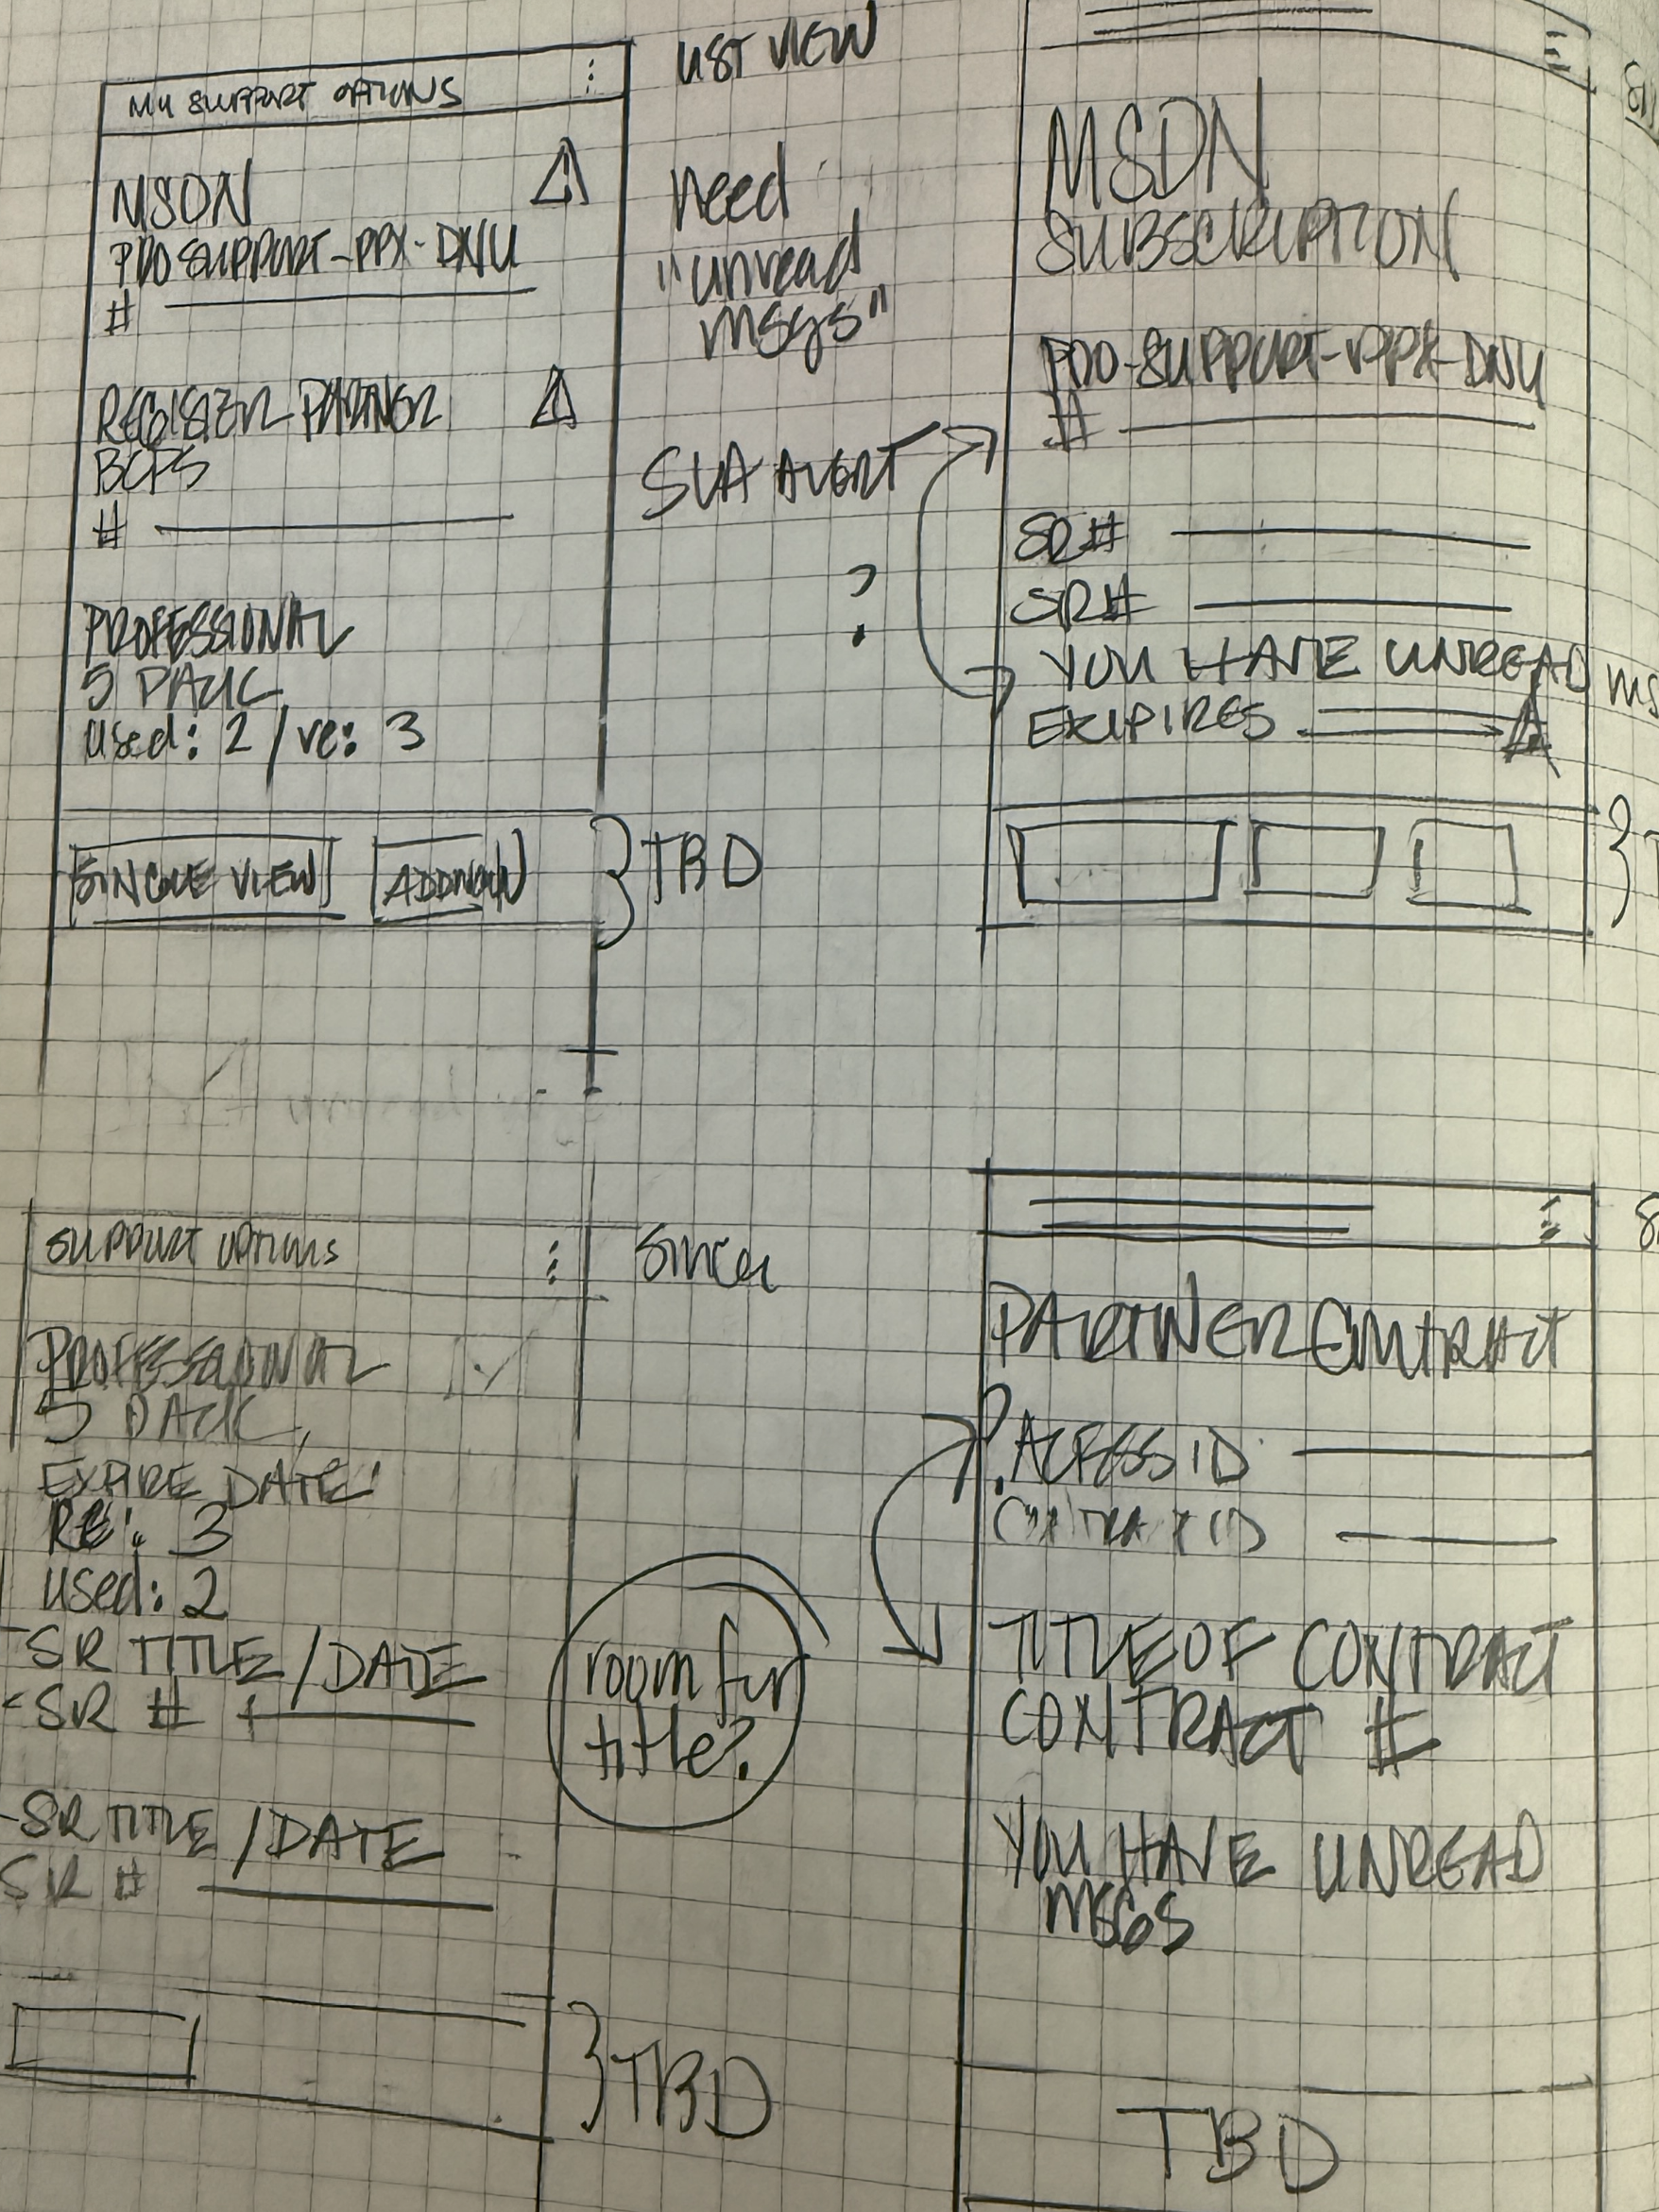 MY SUPPORT OPTIONS
MSDN
PRO SUPPORT-PPX-DNU
#
REGISTER PARTNER
BCPS
#
PROFESSIONAL
5 PACK
used: 2 / re: 3
SINGLE VIEW
ADD NEW
TBD
LIST VIEW
need
"unread
msgs"
SLA ALERT
?
MSDN
SUBSCRIPTION
PRO-SUPPORT-PPX-DNU
#
SR#
SR#
YOU HAVE UNREAD MS
EXIPIRES
SUPPORT OPTIONS
PROFESSIONAL
5 PACK
EXPIRE DATE:
RE: 3
used: 2
-SR TITLE / DATE
-SR #
-SR TITLE / DATE
SR #
TBD
Single
room for
title?
PARTNER CONTRACT
? ACCESS ID
CONTRACT ID
TITLE OF CONTRACT
CONTRACT #
YOU HAVE UNREAD
MSGS
TBD